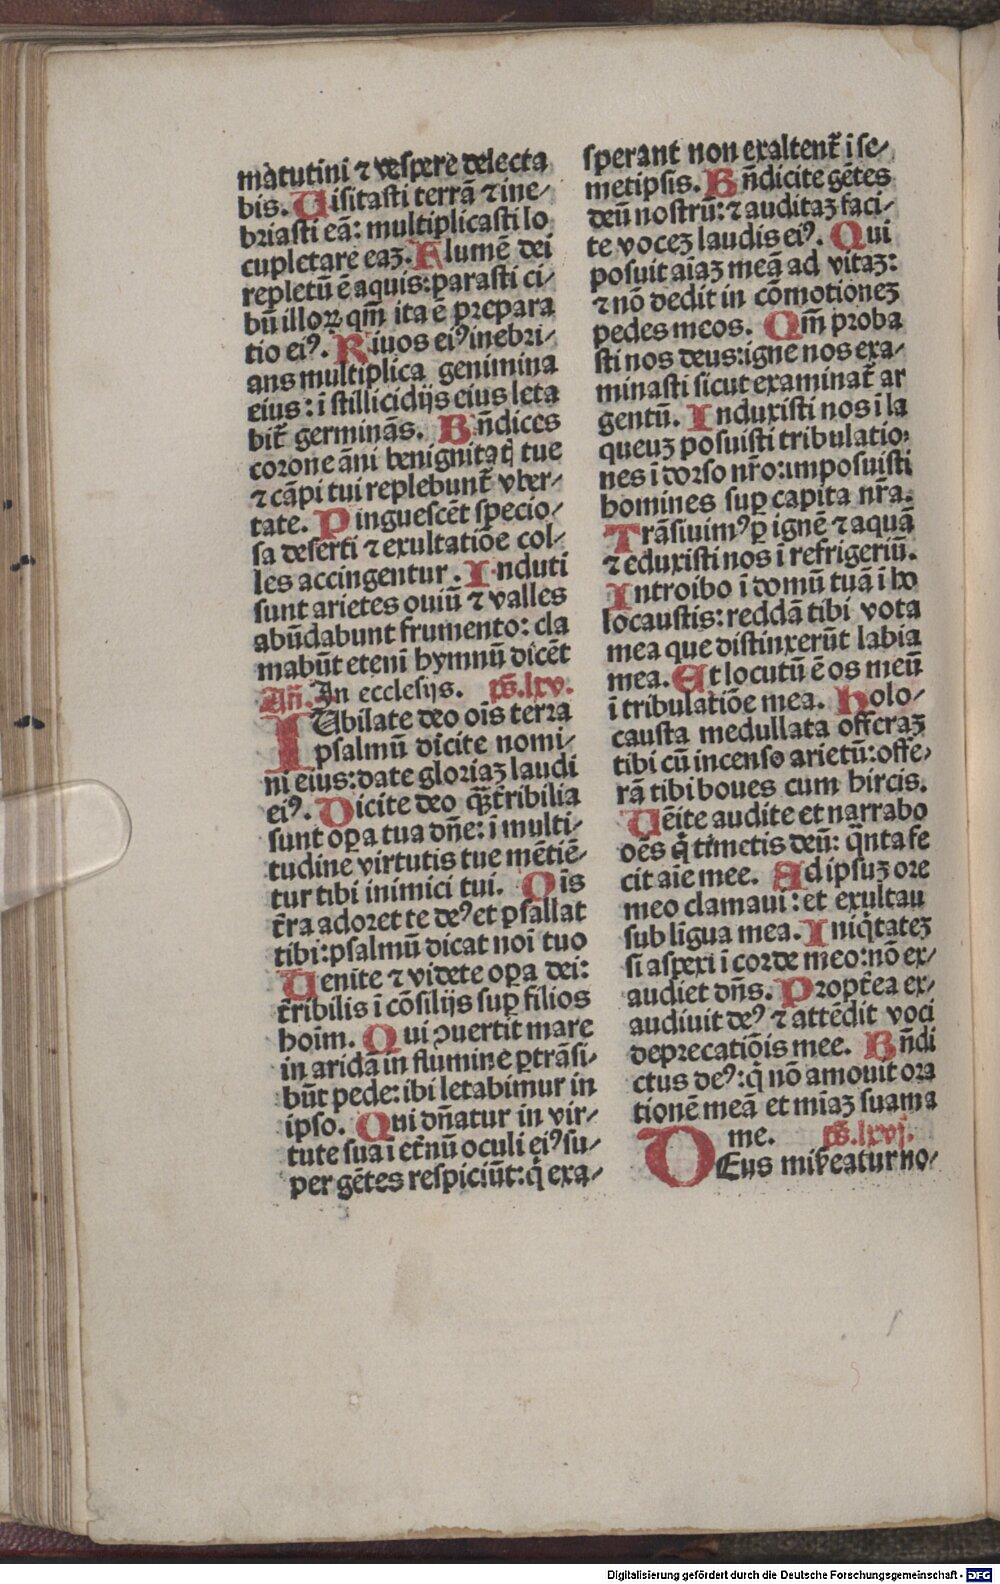 matutini ⁊ vespere delecta
bis. Uisitasti terrā ⁊ ine⸗
briasti eā: multiplicasti lo
cupletare eaꝫ. Flumē dei
repletū ē aquis: parasti ci⸗
bū illoꝝ qm̄ ita ē prepara
tio eiꝰ. Riuos eiꝰ inebri⸗
ans multiplica genimina
eius: ī stillicidijs eius leta
bit̄ germinās. Bn̄dices
corone āni benignitatꝭ tue
⁊ cāpi tui replebunt̄ vber⸗
tate. Pinguescēt specio⸗
sa deserti ⁊ exultatiōe col⸗
les accingentur. Induti
sunt arietes ouiū ⁊ valles
abūdabunt frumento: cla
mabūt etenī hymnū dicēt
Añ. In ecclesijs. ps̄.lxv.
IUbilate deo oīs terra
psalmū dicite nomi⸗
ni eius: date gloriaꝫ laudi
eiꝰ. Dicite deo qꝫ̄ t̄ribilia
sunt oꝑa tua dn̄e: ī multi⸗
tudine virtutis tue mētiē⸗
tur tibi inimici tui. Oīs
t̄ra adoret te deꝰ et psallat
tibi: psalmū dicat noī tuo
Uenite ⁊ videte oꝑa dei:
t̄ribilis ī cōsilijs suꝑ filios
hoīm. Qui ꝯuertit mare
in aridā in flumine ꝑtrāsi⸗
būt pede: ibi letabimur in
ipso. Qui dn̄atur in vir⸗
tute sua ī et̄nū oculi eiꝰ su⸗
per gētes respiciūt: q̇ exa⸗
sperant non exaltent̄ ī se⸗
metipsis. Bn̄dicite gētes
deū nostrū: ⁊ auditaꝫ faci⸗
te voceꝫ laudis eiꝰ. Qui
posuit aīaꝫ meā ad vitaꝫ:
⁊ nō dedit in cōmotioneꝫ
pedes meos. Qm̄ proba
sti nos deus: igne nos exa⸗
minasti sicut examinat̄ ar
gentū. Induxisti nos ī la
queuꝫ posuisti tribulatio⸗
nes ī dorso nr̄o: imposuisti
homines suꝑ capita nr̄a.
Trāsiuimꝰ ꝑ ignē ⁊ aquā
⁊ eduxisti nos ī refrigeriū.
Introibo ī domū tuā ī ho
locaustis: reddā tibi vota
mea que distinxerūt labia
mea. Et locutū ē os meū
ī tribulatiōe mea. Holo⸗
causta medullata offeraꝫ
tibi cū incenso arietū: offe⸗
rā tibi boues cum hircis.
Uēite audite et narrabo
oēs q̇ timetis deū: q̄nta fe
cit aīe mee. Ad ipsuꝫ ore
meo clamaui: et exultaui
sub līgua mea. Iniq̇tateꝫ
si aspexi ī corde meo: nō ex⸗
audiet dn̄s. Propt̄ea ex⸗
audiuit deꝰ ⁊ attēdit voci
deprecatiōis mee. Bn̄di
ctus deꝰ: q̇ nō amouit ora
tionē meā et mīaꝫ suam a
me. ps̄.lxvj.
DEus miẜeatur no⸗
Digitalisierung gefördert durch die Deutsche Forschungsgemeinschaft - DFG